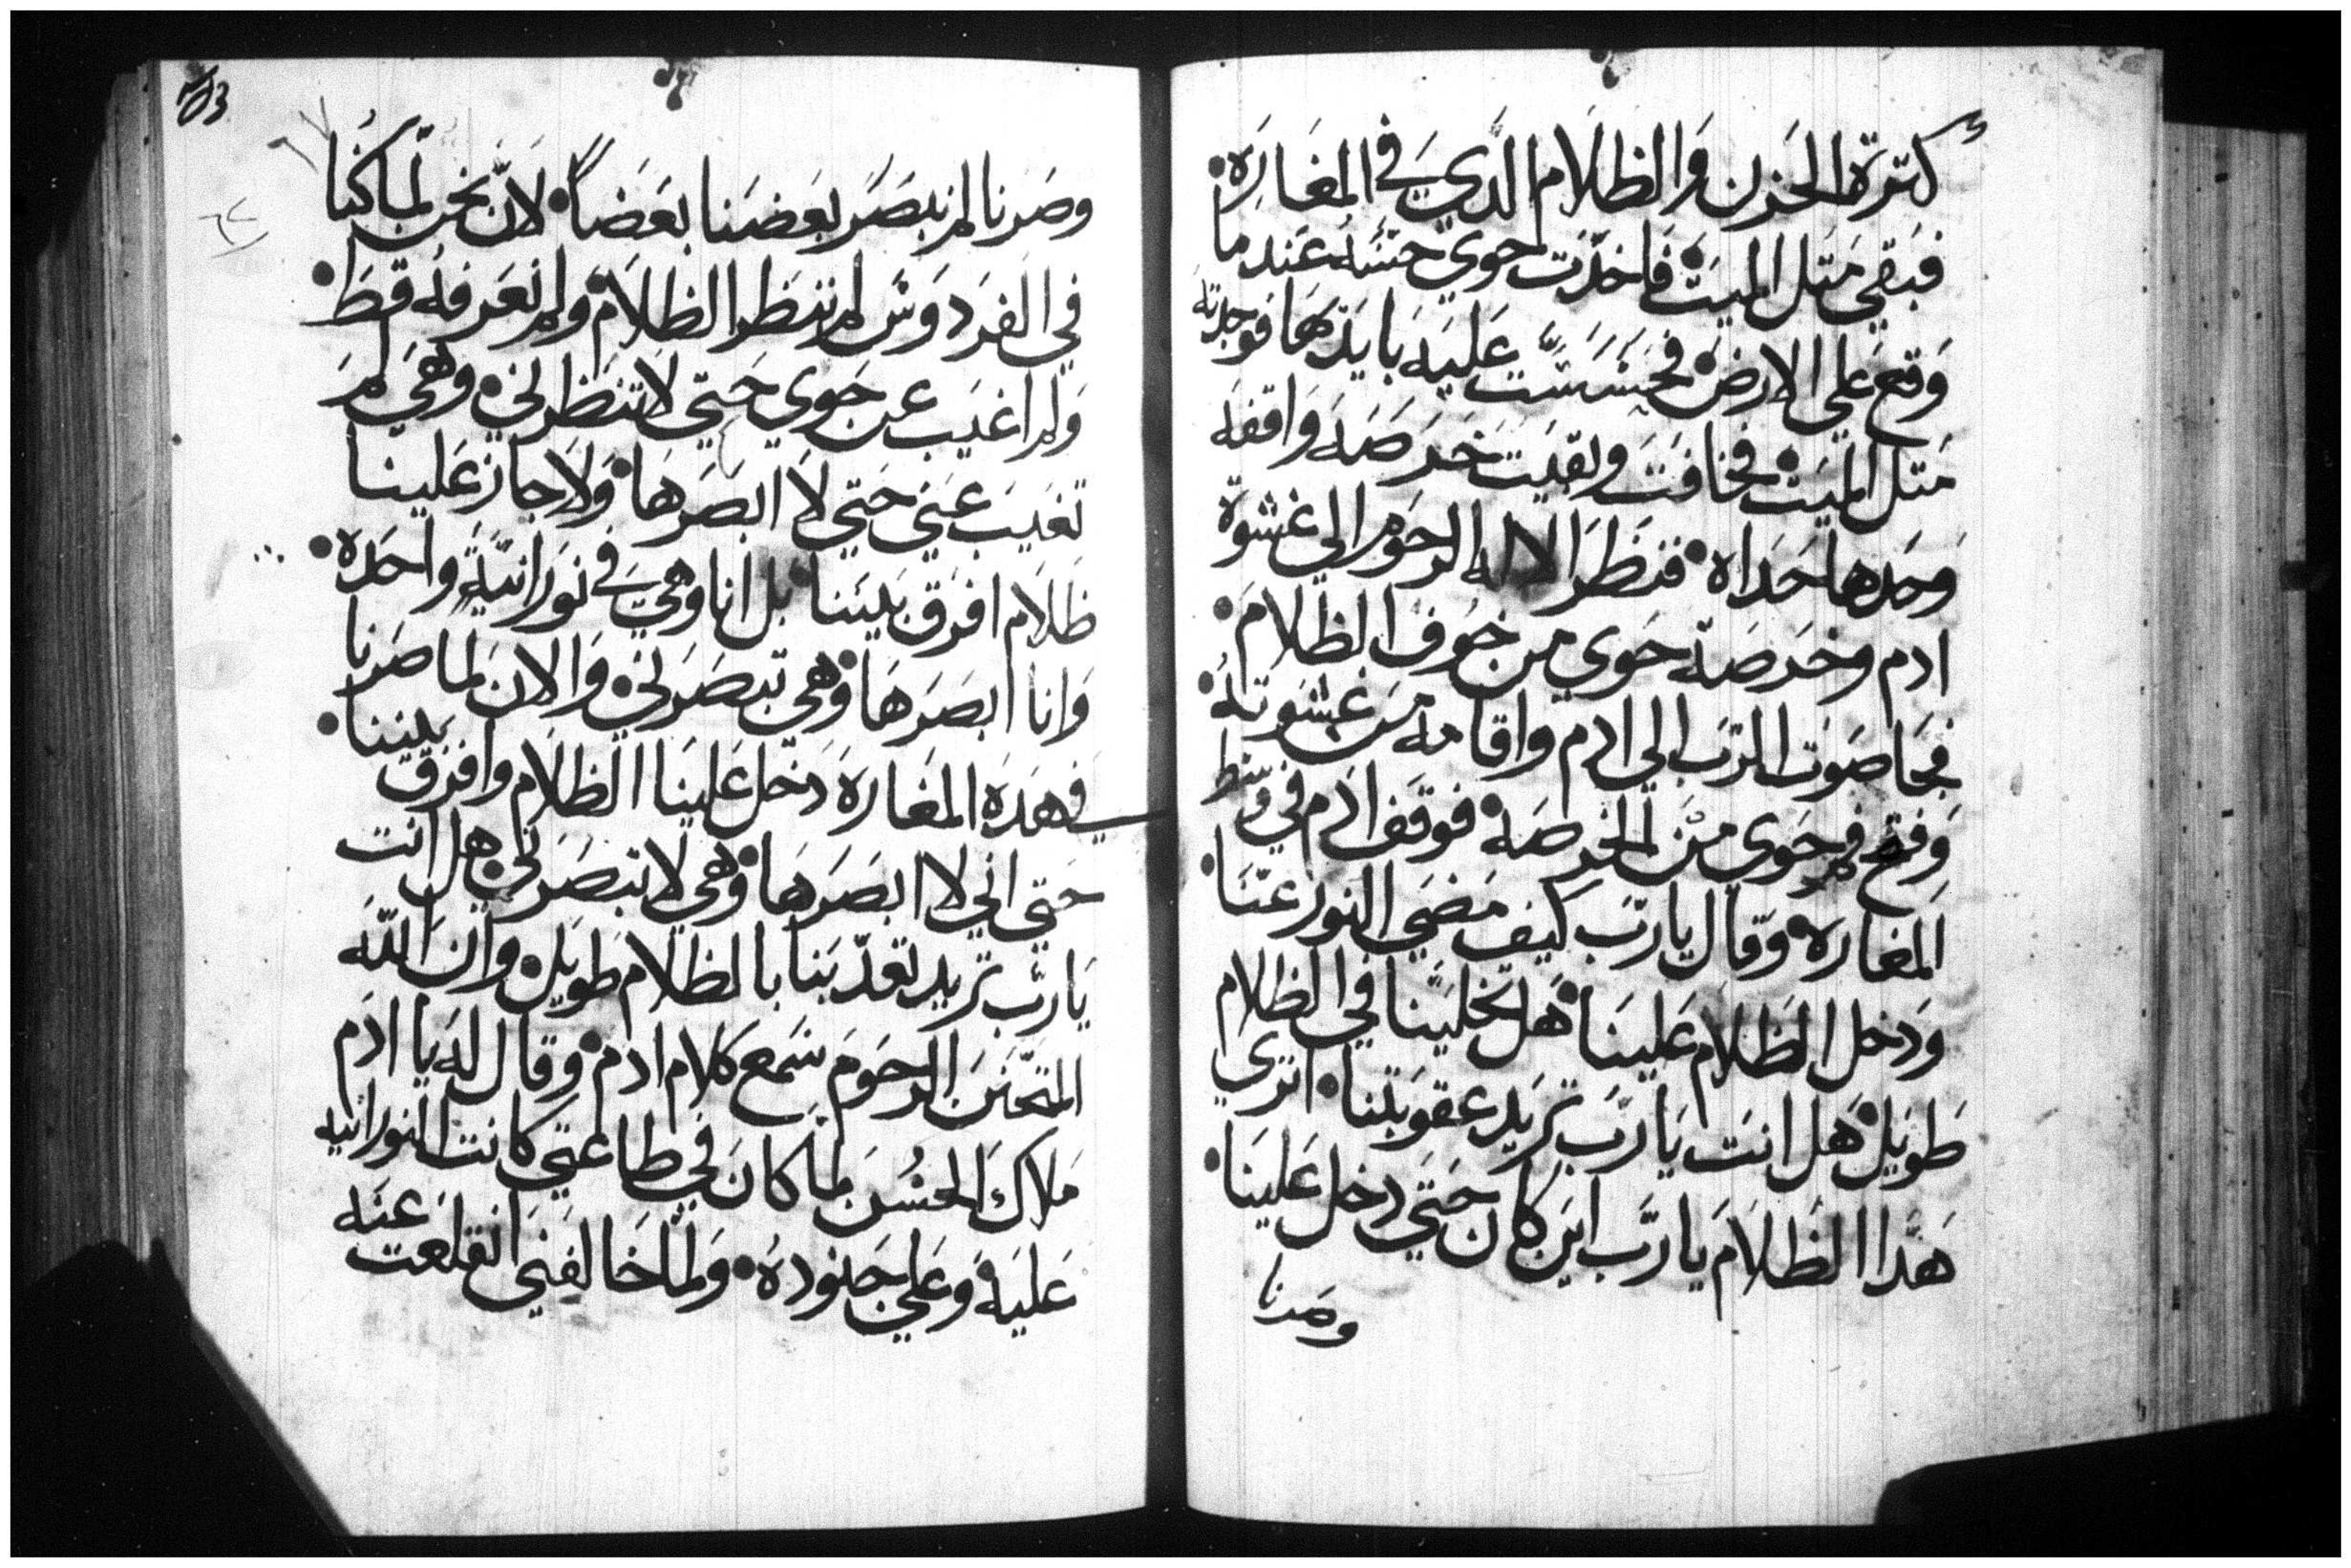 كترة الحزن والظلام الدي في المغاره•
فبقي متل الميت• فاخدت حوي حسه عند ما
وقع علي الارض• فحسست عليه بايدها فوجدته
متل الميت• فخافت وبقيت خرصه واقفه
وحدها حداه• فنظر الاله الرحوم الي غشوة
ادم وخرصة حوي من خوف الظلام•
فجا صوت الرب الي ادم واقامه من غشوته•
وفتح فم حوي من الخرصه• فوقف ادم في وسط
المغاره• وقال يا رب كيف مضي النور عنا•
ودخل الظلام علينا• هل تخلينا في الظلام
طويل• هل انت يا رب تريد عقوبتنا• اتري
هدا الظلام يا رب اين كان حتي دخل علينا•
وصرنا
103
وصرنا لم نبصر بعضنا بعضا• لان نحن لما كنا
في الفردوس لم ننظر الظلام• ولم نعرفه قط•
ولم اغيب عن حوي حتي لا تنظرني• وهي لم
تغيب عني حتي لا ابصرها• ولا جاز علينا
ظلام افرق بيننا• بل انا وهي في نورانية واحده•
وانا ابصرها• وهي تبصرني• والان لما صرنا
في هده المغاره دخل علينا الظلام وافرق بيننا•
حتي اني لا ابصرها• وهي لا تبصرني• هل انت
يا رب تريد تعدبنا بالظلام طويل• وان الله
المتحنن الرحوم سمع كلام ادم• وقال له يا ادم
ملاك الحسن لما كان في طاعتي كانت النورانيه
عليه• وعلي جنوده• ولما خالفني انقلعت عنه